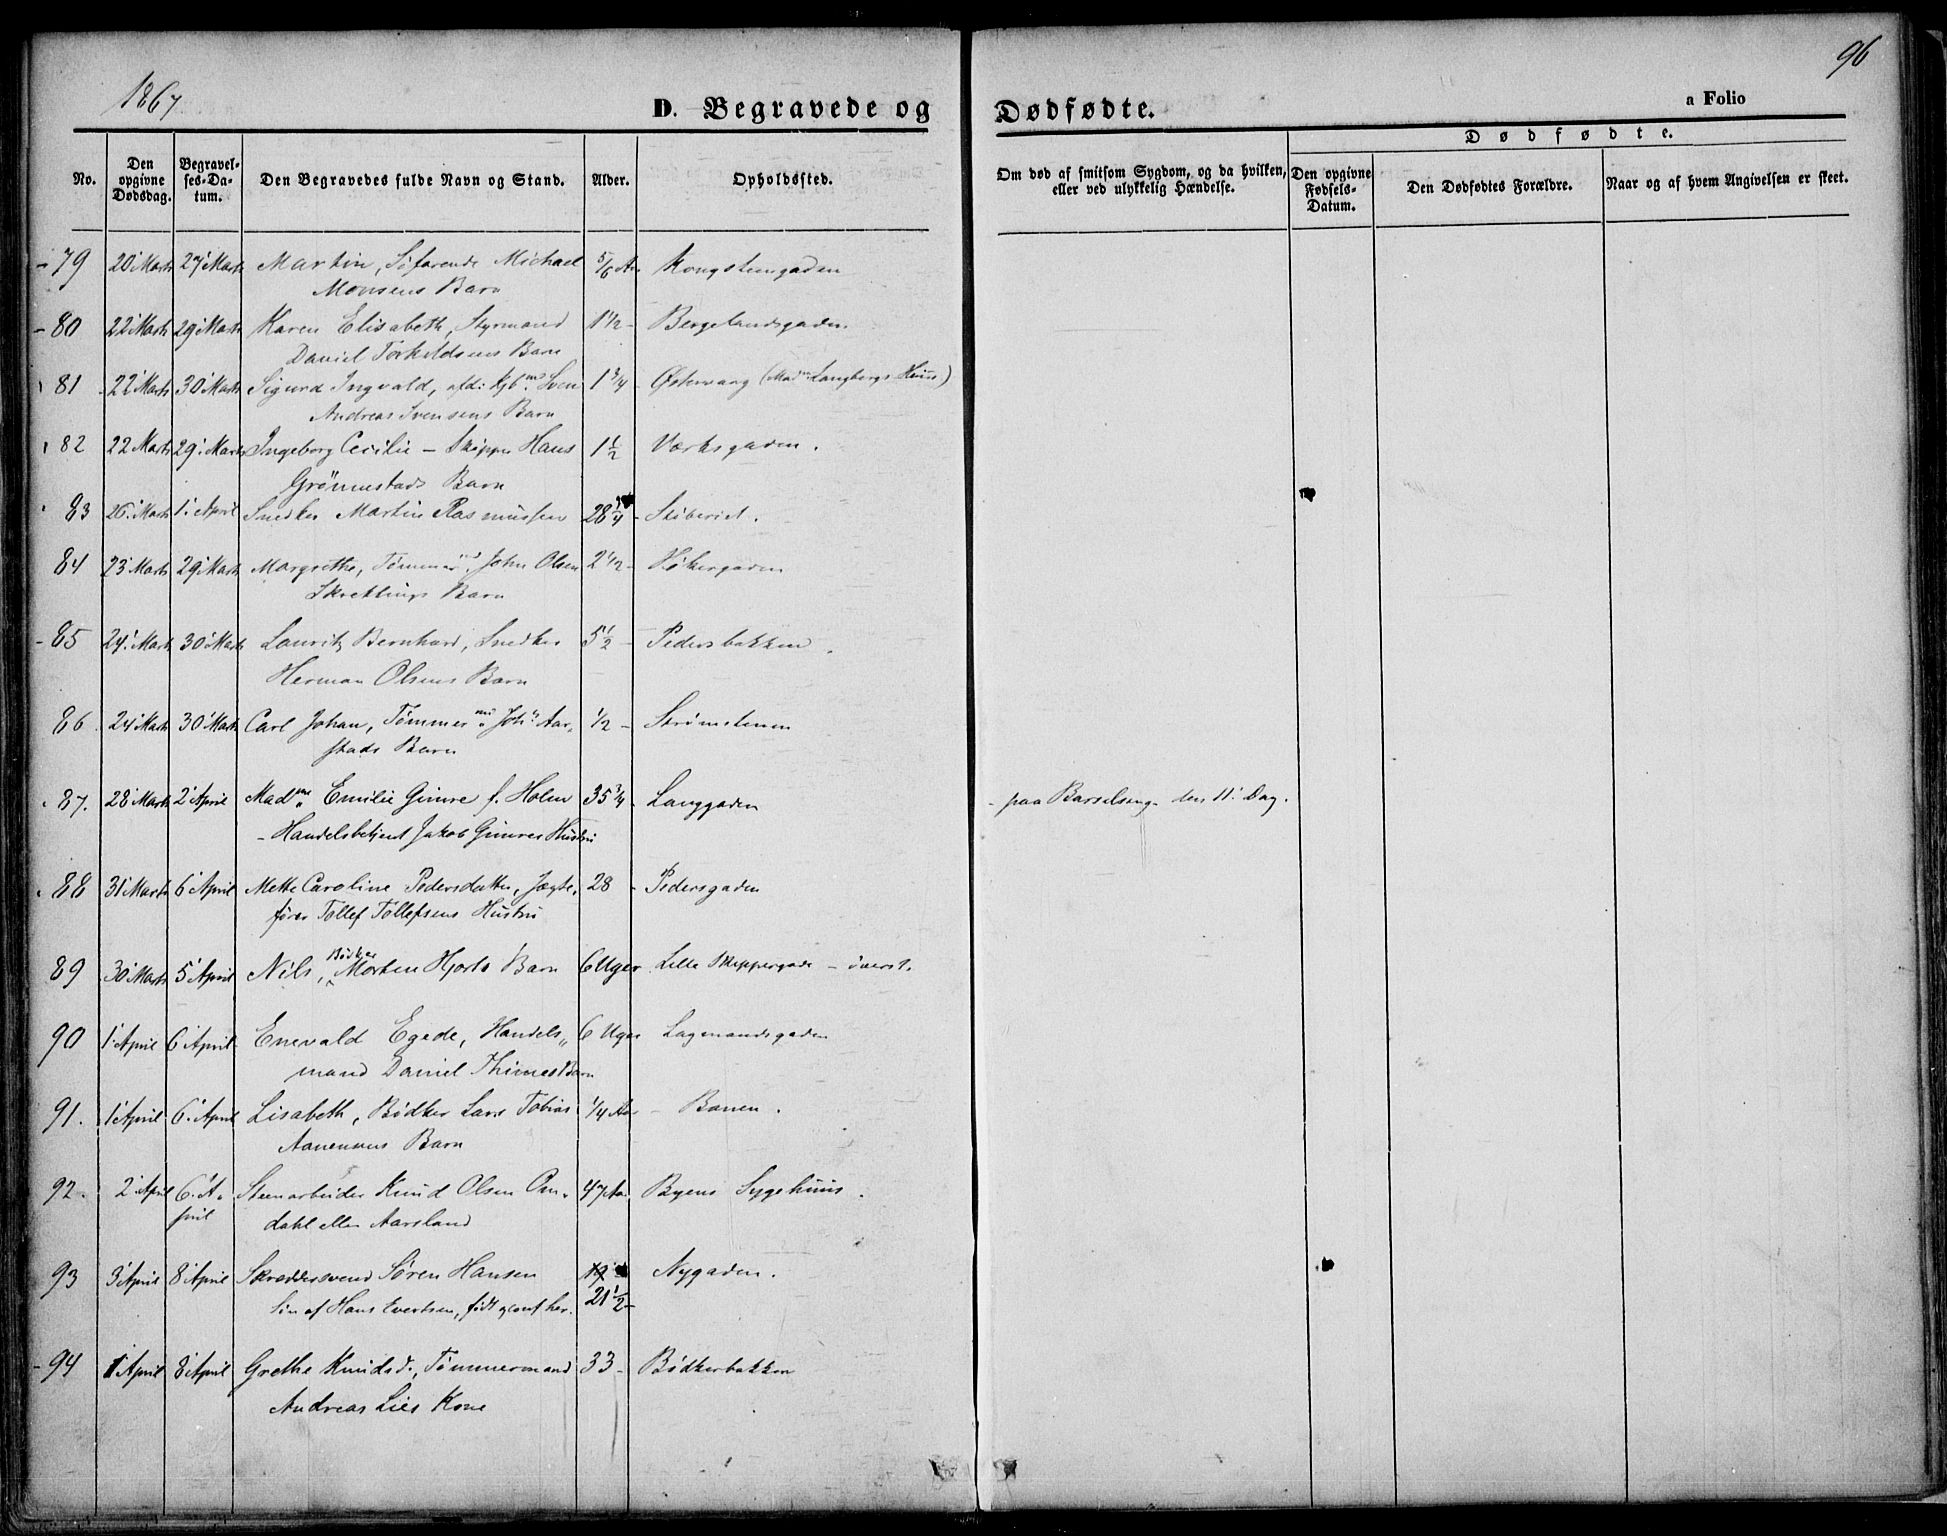 1867
96
D. Begravede og Dødfødte.
a Folio
No.
Den opgivne Dødsdag.
Begravelses-Datum.
Den Begravedes fulde Navn og Stand.
Alder.
Opholdssted.
Om død af smitsom Sygdom, og da hvilken, eller ved ulykkelig Hændelse.
Dødfødte.
Den opgivne Fødsels-Datum.
Den Dødfødtes Forældre.
Naar og af hvem Angivelsen er skeet.
79 20 Marts 27 Marts Martin, Söfarende Michael 5/6 Aar Kongsteengaden
Monsens Barn
80 22 Marts 29 Marts Karen Elisabeth, Styrmand 1 1/2 - Bergelandsgaden.
Daniel Torkildsens Barn
81 22 Marts 30 Marts Sigurd Ingvald, afd: Kjbmd. Sven 1 3/4 - Østervaag (Madm Langbergs Huus)
Andreas Svensens Barn
82 22 Marts 29. Marts Ingeborg Cecilie - Skipper Hans 1 1/2 Værksgaden.
Grönnestads Barn
83 26. Marts 1. April Snedker Martin Rasmussen 28 1/4 - Støberiet.
84 23 Marts 29 Marts Margrethe, Tømmermd. John Olsen 2 1/2 - Høkergaden
Skretlings Barn
85 24. Marts 30 Marts Lauritz Bernhard, Snedker 5 1/2 - Pedersbakken.
Herman Olsens Barn
86 24 Marts 30 Marts Carl Johan, Tømmermd. Johs Aar- 1/2 - Strømstenen
stads Barn
87. 28 Marts 2 April Madme Emilie Gimre f. Holm 35 3/4 - Langgaden - paa Barselseng den 11. Dag.
- Handelsbetjent Jakob Gimres Hustru
88 31 Marts 6 April Mette Caroline Pedersdatter, Jægte- 28 - Pedersgaden
fører Tollef Tollefsens Hustru
89 30 Marts 5 April Nils, Bødker Morten Hjorts Barn 6 Uger Lille Skippergade - överst.
90 1 April 6 April Enevald Egede, Handels„ 6 Uger Lagmandsgaden
mand Daniel Thimes Barn
91. 1 April 6. April Lisabeth, Bødker Lars Tobias 1/4 Aar - Banen.
Aanensens Barn
92. 2 April 6. A- Steenarbeider Knud Olsen Om- 47 Aar Byens Sygehuus.
pril dahl eller Aarsland
93 3 April 8 April Skræddersvend Søren Hansen 19 Nygaden.
Sön af Hans Evertsen, født og conf her. 21 1/2 -
94 1 April 8 April Grethe Knudsd., Tømmermand 33 - Bödkerbakken
Andreas Lies Kone